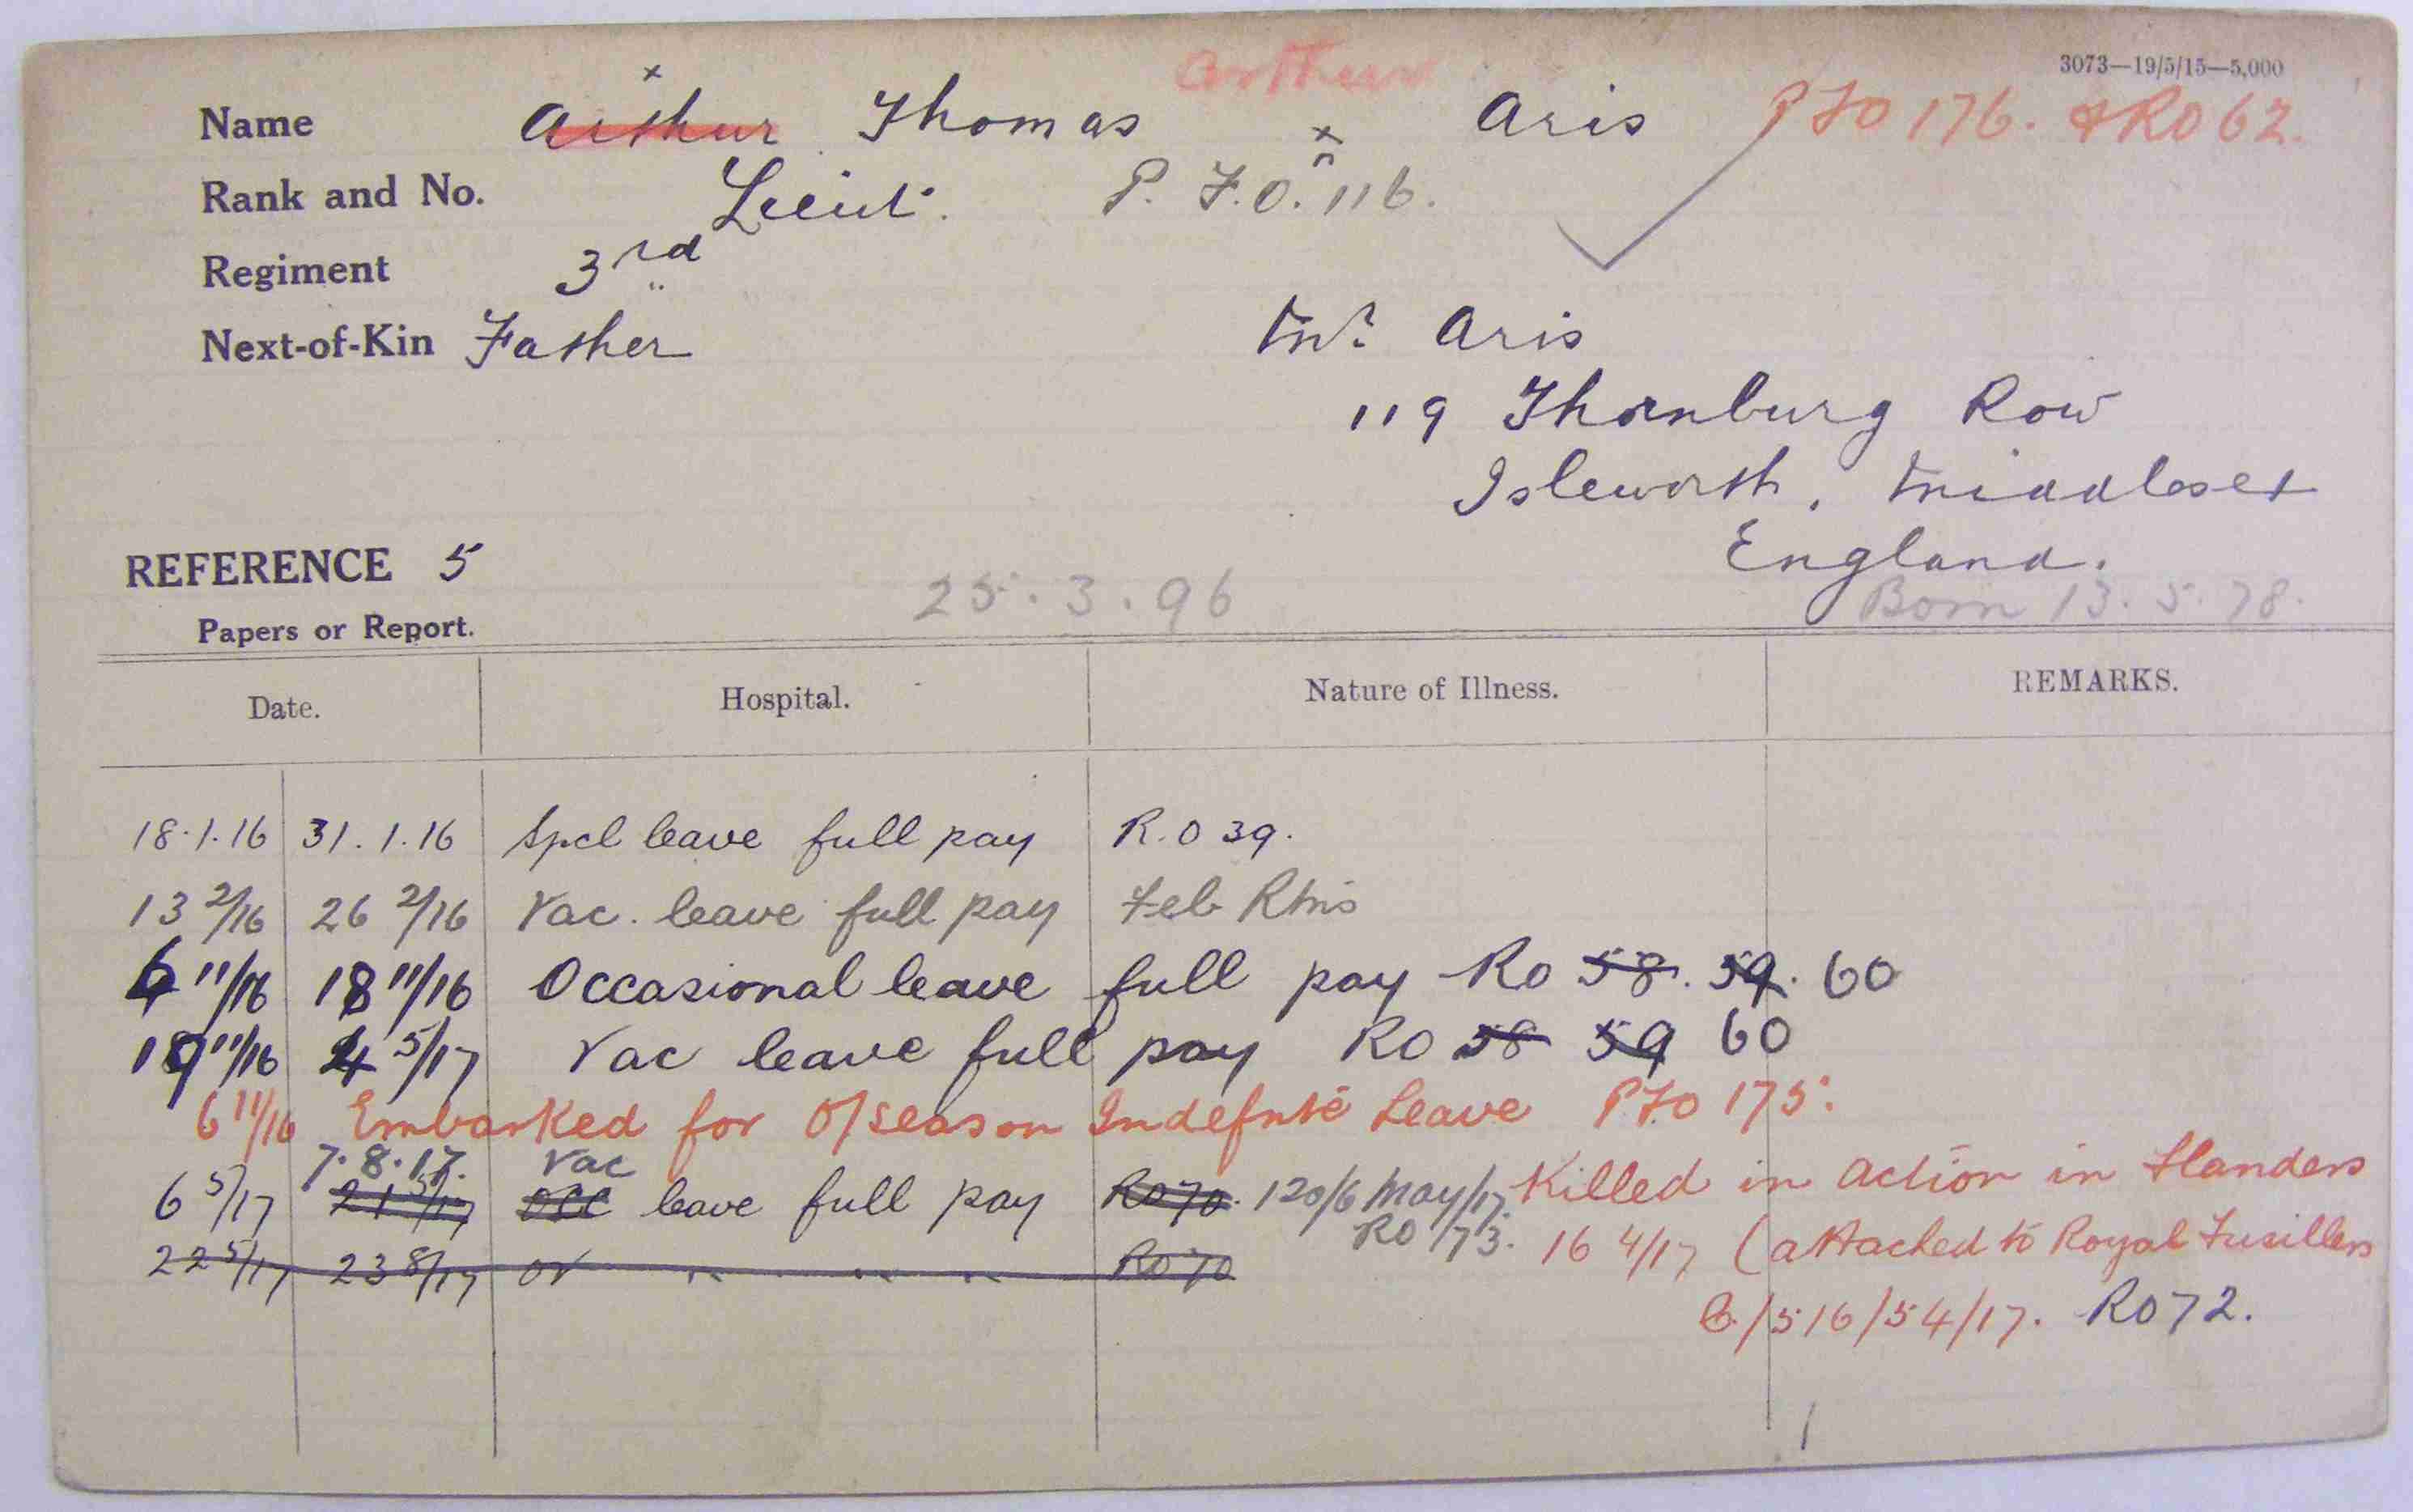 3073—19/5/15—5,000
Arthur
Name Arthur Thomas Aris PFO 176. & RO 62.
Rank and No. Lieut. P. F.O. 116.
Regiment 3rd
Next-of-Kin Father Mr. Aris
119 Thornburg Row
Isleworth, Middlesex
England.
REFERENCE 5
25.3.96 Born 13.5.78.
Papers or Report.
Date. Hospital. Nature of Illness. REMARKS.
18.1.16 31.1.16 Spcl leave full pay R.O 39.
13 2/16 26 2/16 Vac. leave full pay Feb Rtns
6 11/16 18 11/16 Occasional leave full pay RO 58. 59. 60
19 11/16 4 5/17 Vac leave full pay RO 58 59 60
6 11/16 Embarked for O/Seas on Indefnte Leave PFO 175.
7.8.17. Vac
6 5/17 21 5/17 Occ leave full pay RO 70. 120/6 May/17. Killed in action in Flanders
RO 73. 16 4/17 (attached to Royal Fusillers
22 5/17 23 8/17 or " " " RO 70
C/516/54/17. RO 72.